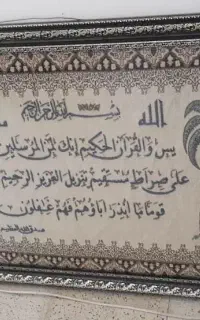 الله
بسم الله الرحمن الرحيم
يس والقرآن الحكيم انك لمن المرسلين
على صراط مستقيم تنزيل العزيز الرحيم
قوما ما انذر اباؤهم فهم غفلون
صدق الله العظيم